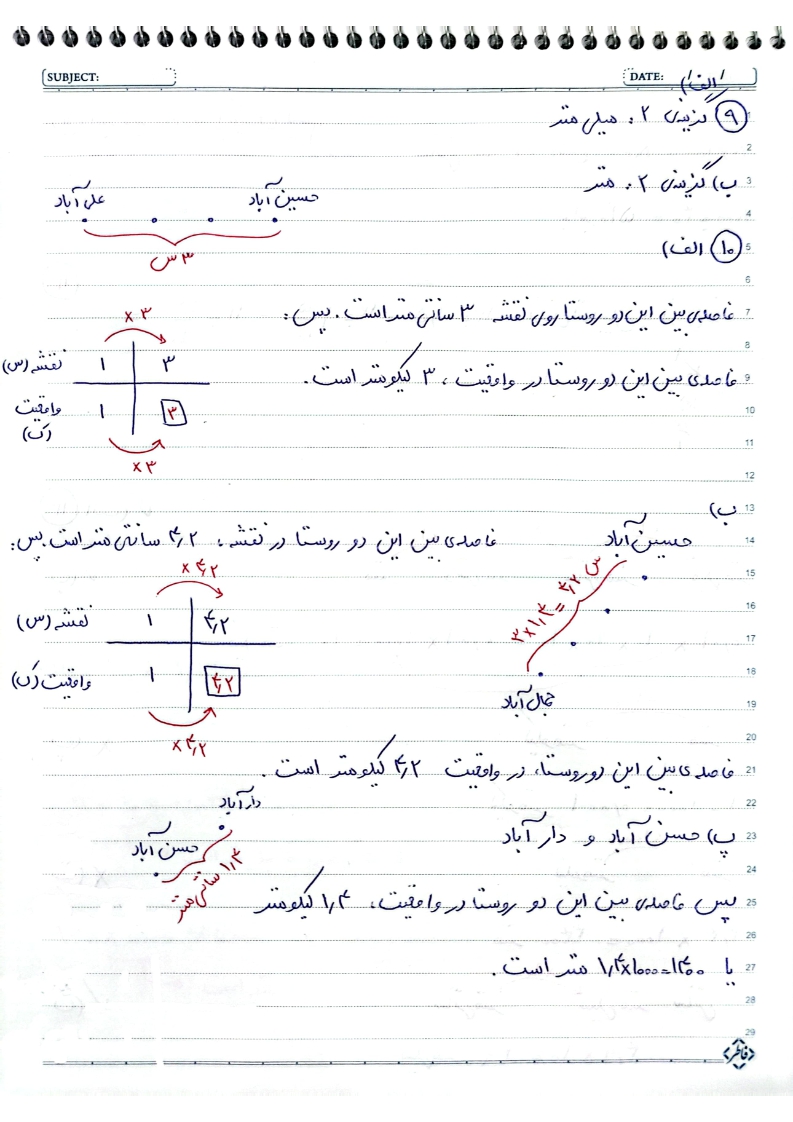 SUBJECT:
DATE: / /
۹ الف)
گزینه‌ی ۲ : میلی متر
ب) گزینه‌ی ۲ : متر
علی آباد حسین آباد
۳ س
۱۰ الف)
فاصله‌ی بین این دو روستا روی نقشه ۳ سانتی متر است. پس:
× ۳
نقشه (س) ۱ ۳
فاصله‌ی بین این دو روستا در واقعیت ، ۳ کیلومتر است.
واقعیت (ک) ۱ ۳
× ۳
ب)
حسین آباد
فاصله‌ی بین این دو روستا در نقشه، ۴٫۲ سانتی متر است. پس:
× ۴٫۲
۳ × ۱٫۴ = ۴٫۲ س
نقشه (س) ۱ ۴٫۲
واقعیت (ک) ۱ ۴٫۲
جمال آباد
× ۴٫۲
فاصله‌ی بین این دو روستا، در واقعیت ۴٫۲ کیلومتر است.
دار آباد
پ) حسن آباد و دار آباد
حسن آباد
۱٫۴ سانتی متر
پس فاصله‌ی بین این دو روستا در واقعیت، ۱٫۴ کیلومتر
یا ۱٫۴×۱۰۰۰=۱۴۰۰ متر است.
1
2
3
4
5
6
7
8
9
10
11
12
13
14
15
16
17
18
19
20
21
22
23
24
25
26
27
28
29